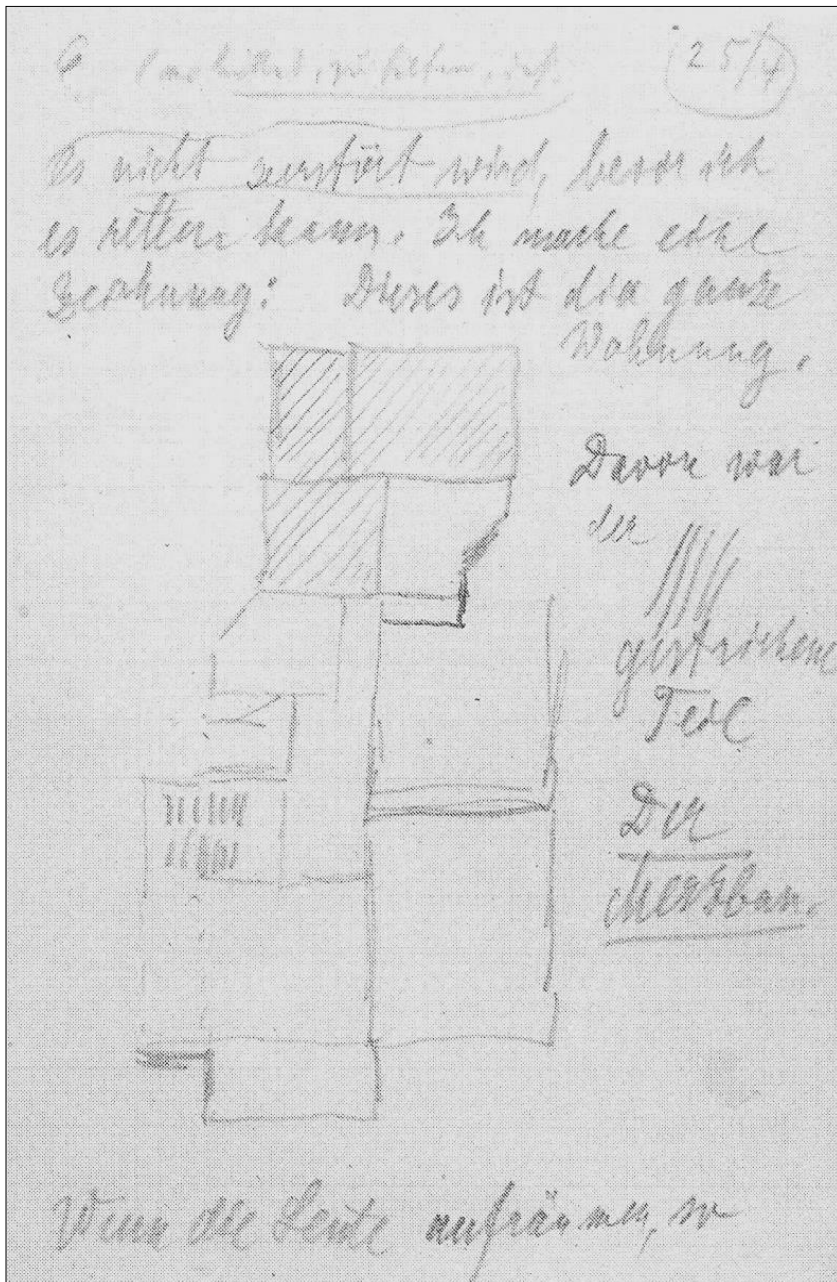 25/4
es nicht zerstört wird, bevor ich
es retten kann. Ich mache eine
Zeichnung: Dieses ist die ganze
Wohnung.
Davon war
der
gestrichene
Teil
Der
Merzbau.
Wenn die Leute aufräumen, so